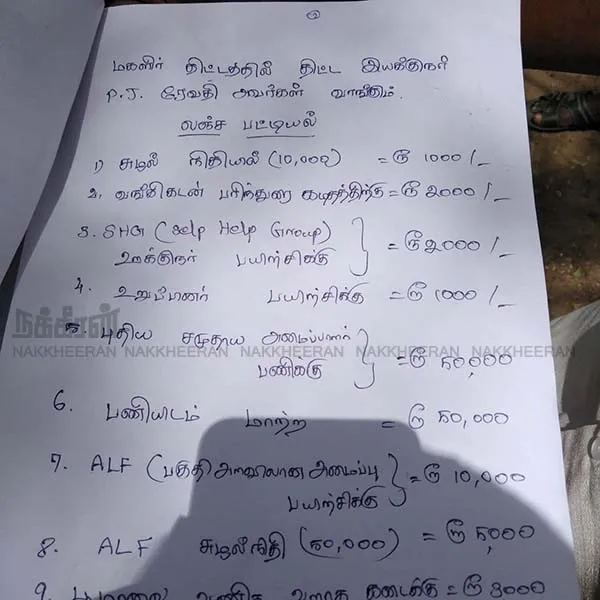 மகளிர் திட்டத்தில் திட்ட இயக்குநர்
P.J. ரேவதி அவர்கள் வாங்கும்
லஞ்ச பட்டியல்
1) சுழல் நிதியில் (10,000) = ரூ 1000/-
2, வங்கிகடன் பரிந்துரை கடிதத்திற்கு = ரூ 2000/-
3. SHG (Self Help Group)
ஊக்குநர் பயிற்சிக்கு = ரூ 2000/-
4. உறுப்பினர் பயிற்சிக்கு = ரூ 1000/-
நக்கீரன்
5. புதிய சமுதாய அமைப்பாளர்
NAKKHEERAN NAKKHEERAN NAKKHEERAN NAKKHEERAN NAKKHEERAN
பணிக்கு = ரூ 50,000
6. பணியிடம் மாற்ற = ரூ 50,000
7. ALF (பகுதி அளவிலான அமைப்பு
பயிற்சிக்கு = ரூ 10,000
8. ALF சுழல்நிதி (50,000) = ரூ 5,000
9. = ரூ 3000